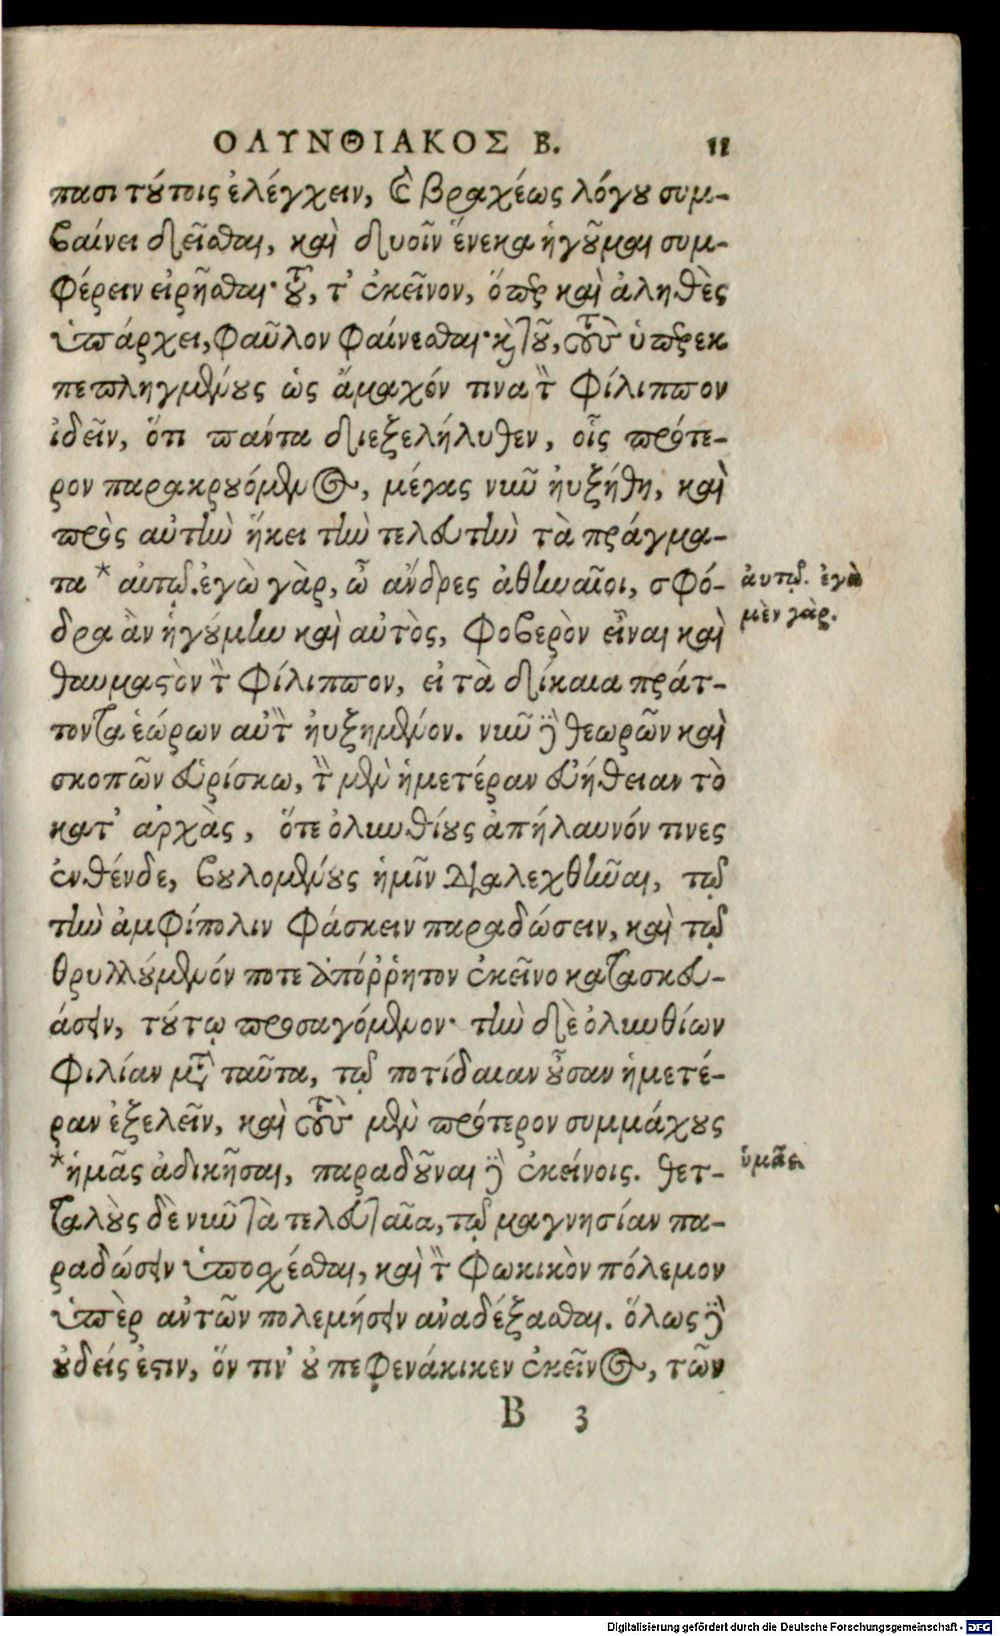 ΟΛΥΝΘΙΑΚΟΣ Β. 11
πασι τούτοις ἐλέγχειν, καὶ βραχέως λόγου συμ-
βαίνει δεῖσθαι, καὶ δυοῖν ἕνεκα ἡγοῦμαι συμ-
φέρειν εἰρῆσθαι· τοῦ, τ' ἐκεῖνον, ὅπερ καὶ ἀληθὲς
ὑπάρχει, φαῦλον φαίνεσθαι· καὶ τοῦ, τοὺς ὑπερεκ
πεπληγμένους ὡς ἄμαχόν τινα τὸν Φίλιππον
ἰδεῖν, ὅτι πάντα διεξελήλυθεν, οἷς πρότε-
ρον παρακρουόμενος, μέγας νῦν ηὐξήθη, καὶ
πρὸς αὐτὴν ἥκει τὴν τελευτὴν τὰ πράγμα-
τα * αὐτῷ. ἐγὼ γὰρ, ὦ ἄνδρες ἀθηναῖοι, σφό-
ἀυτῷ. ἐγὼ
μὲν γὰρ.
δρα ἂν ἡγούμην καὶ αὐτὸς, φοβερὸν εἶναι καὶ
θαυμαστὸν τὸν Φίλιππον, εἰ τὰ δίκαια πράτ-
τοντα ἑώρων αὐτὸν ηὐξημένον. νῦν δὲ θεωρῶν καὶ
σκοπῶν εὑρίσκω, τὴν μὲν ἡμετέραν εὐήθειαν τὸ
κατ' ἀρχὰς, ὅτε ὀλυνθίους ἀπήλαυνόν τινες
ἐνθένδε, βουλομένους ἡμῖν διαλεχθῆναι, τῷ
τὴν ἀμφίπολιν φάσκειν παραδώσειν, καὶ τῷ
θρυλλούμενόν ποτε ἀπόῤῥητον ἐκεῖνο κατασκευ-
άσειν, τούτῳ προσαγόμενον· τὴν δὲ ὀλυνθίων
φιλίαν μετὰ ταῦτα, τῷ ποτίδαιαν οὖσαν ἡμετέ-
ραν ἐξελεῖν, καὶ τοὺς μὲν πρότερον συμμάχους
*ἡμᾶς ἀδικῆσαι, παραδοῦναι δὲ ἐκείνοις. θετ-
ὑμᾶς.
ταλοὺς δὲ νῦν τὰ τελευταῖα, τῷ μαγνησίαν πα-
ραδώσειν ὑποσχέσθαι, καὶ τὸν φωκικὸν πόλεμον
ὑπὲρ αὐτῶν πολεμήσειν ἀναδέξασθαι. ὅλως δὲ
οὐδείς ἐστιν, ὅν τιν' οὐ πεφενάκικεν ἐκεῖνος, τῶν
B 3
Digitalisierung gefördert durch die Deutsche Forschungsgemeinschaft - DFG